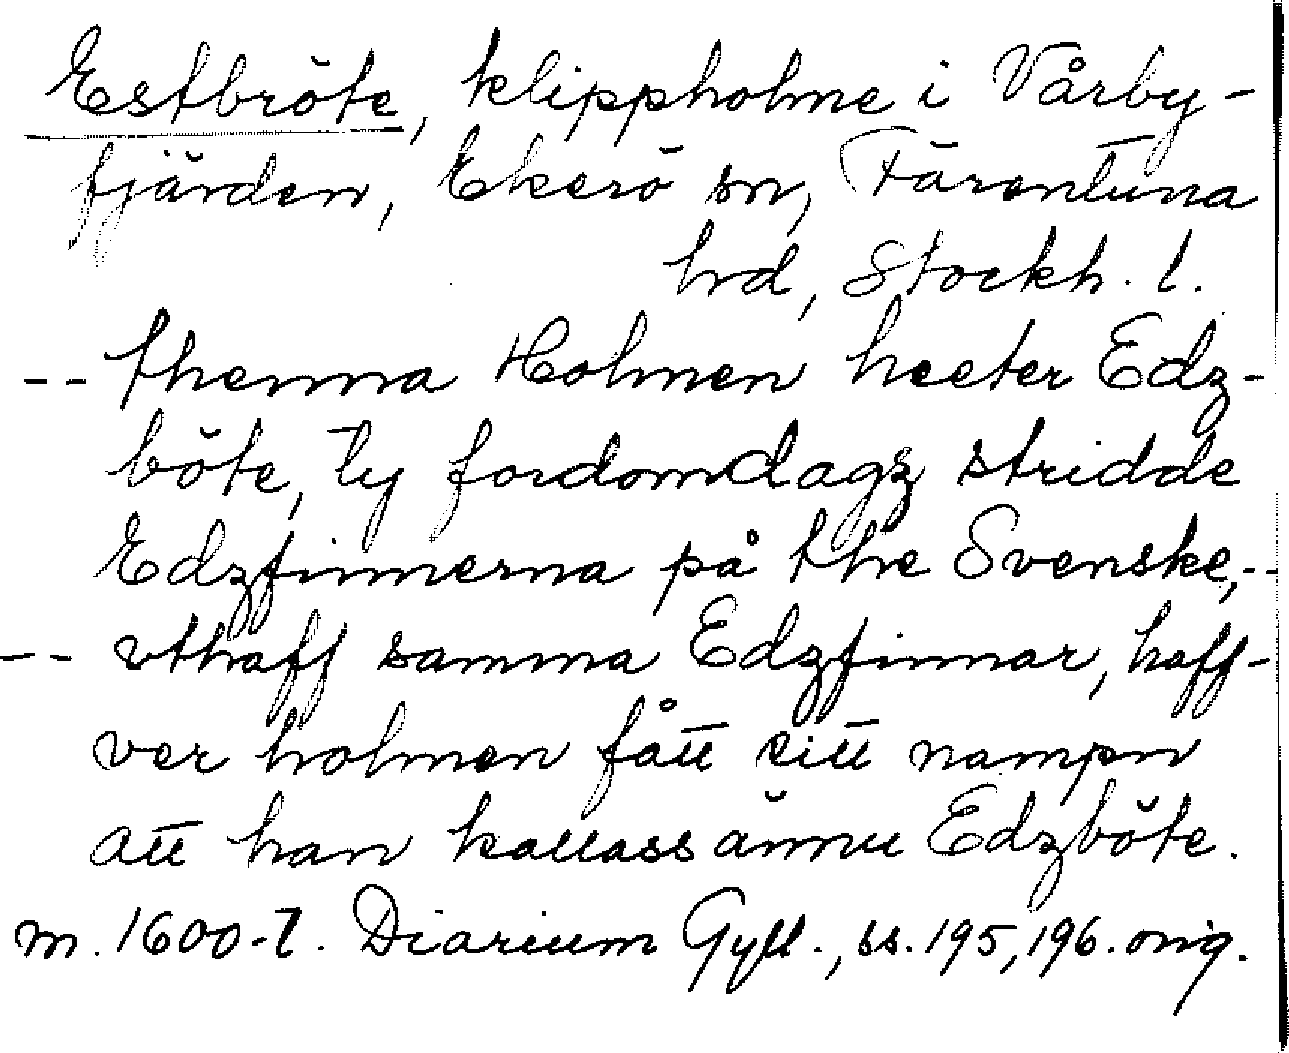 Estbröte, klippholme i Vårby-
fjärden, Ekerö sn, Färentuna
hd, Stockh. l.
-- thenna Holmen heeter Edz-
böte, ty fordomdagz stridde
Edzfinnerna på the Svenske, --
-- vthaff samma Edzfinnar, haff-
ver holmen fått sitt nampn
att han kallass ännu Edzböte.
m. 1600-t. Diarium Gyll., ss. 195, 196. orig.